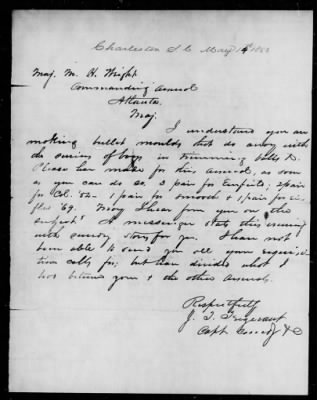 Charleston S C May 14 1863
Maj. M. H. Wright
Commanding Arsenal
Atlanta
Maj.
I understand you are
making bullet moulds that do away with
the services of boys in trimming balls &.
Please have made for this Arsenal, as soon
as you can do so, 3 pair for Enfields, 2 pair
for Cal. 54. 1 pair for smooth & 1 pair for
69. May I hear from you on this
subject? A messenger starts this evening
with sundry stores for you. I have not
been able to send you all your requisi-
tion calls for; but have divided what I
had between you & the other Arsenals.
Respectfully
J. T.
Capt